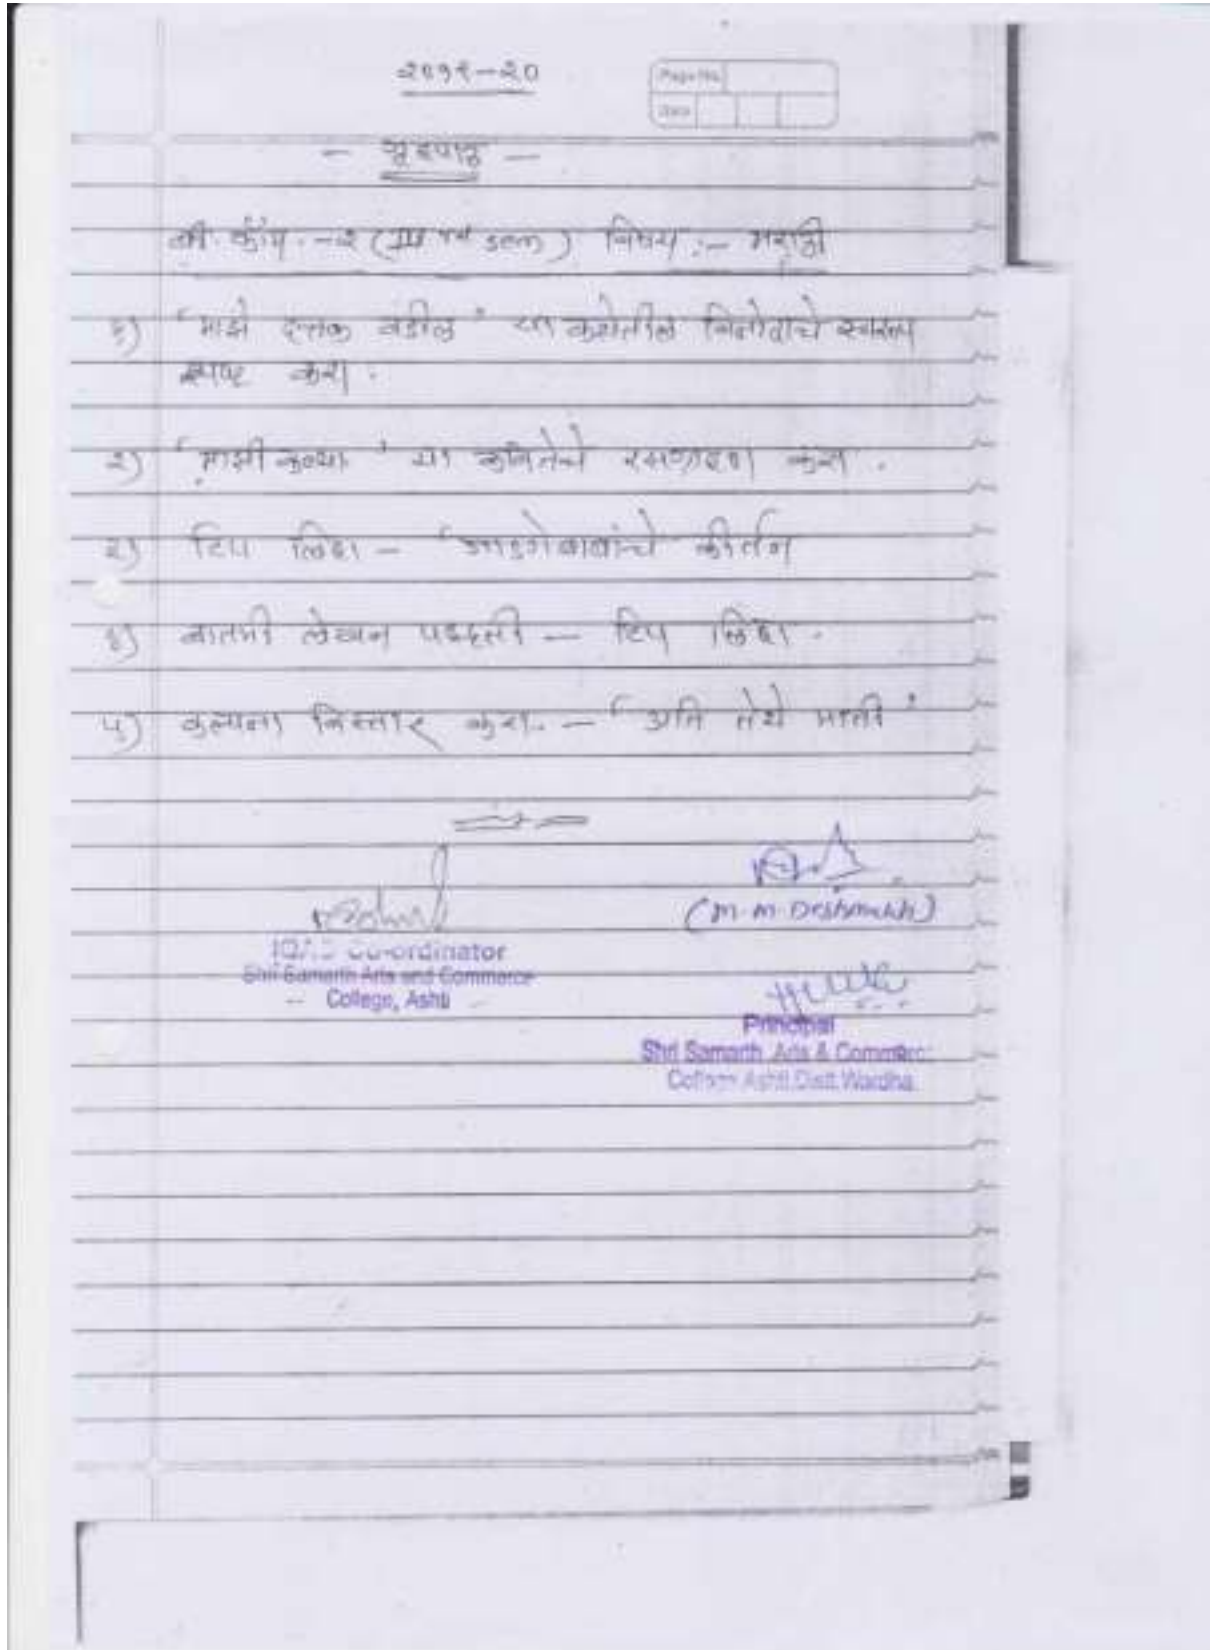 २०१९-२०
Page No.
Date
- गृहपाठ -
बी. कॉम. -२ (III rd sem) विषय :- मराठी
१) 'माझे दत्तक वडील' या कथेतील विनोदाचे स्वरूप
स्पष्ट करा.
२) 'माझी कन्या' या कवितेचे रसग्रहण करा.
३) टिप लिहा - 'गाडगेबाबांचे कीर्तन
४) बातमी लेखन पध्दती - टिप लिहा.
५) कल्पना विस्तार करा. - 'अति तेथे माती'
(M. M. Deshmukh)
IQAC Co-ordinator
Shri Samarth Arts and Commerce
College, Ashti
Principal
Shri Samarth Arts & Commerce
College Ashti Distt. Wardha